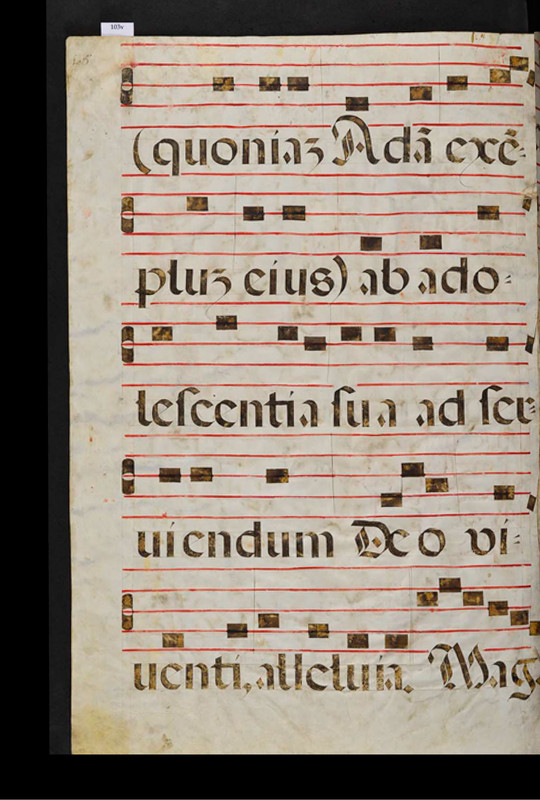 103v
(quoniaʒ Adã exẽ-
pluʒ eius) ab ado-
leſcentia ſua ad ſer-
uiendum Deo vi-
uenti, alleluia. Mag